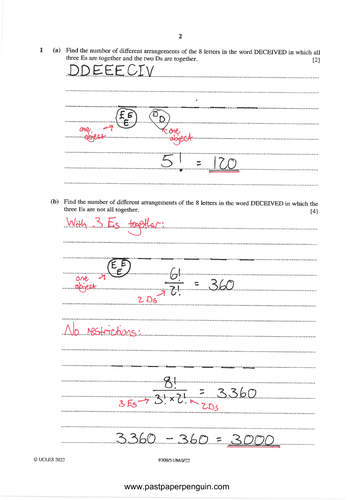 2
1 (a) Find the number of different arrangements of the 8 letters in the word DECEIVED in which all
three Es are together and the two Ds are together. [2]
DDEEECIV
E E
E
D
D
one
object
one
object
5! = 120
(b) Find the number of different arrangements of the 8 letters in the word DECEIVED in which the
three Es are not all together. [4]
With 3 Es together:
E E
E
one
object
6!
2!
= 360
2 Ds
No restrictions:
8!
3! × 2!
= 3360
3 Es
2Ds
3360 - 360 = 3000
© UCLES 2022
www.pastpaperpenguin.com